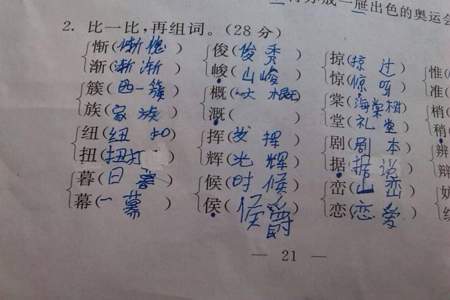 一册出色的奥运会
2. 比一比,再组词。(28 分)
惭(惭愧) 俊(俊秀) 掠(掠过) 惟(
渐(渐渐) 峻(山峻) 惊(惊呀) 准(
簇(西一簇) 概(大概) 棠(海棠树) 梢(
族(家族) 溉( ) 堂(礼堂) 稍(
纽(纽扣) 挥(发挥) 剧(剧本) 辨
扭(扭打) 辉(光辉) 据(据说) 辩
暮(日暮) 候(时候) 峦(山峦)
幕(一幕) 侯(侯爵) 恋(恋爱)
— 21 —